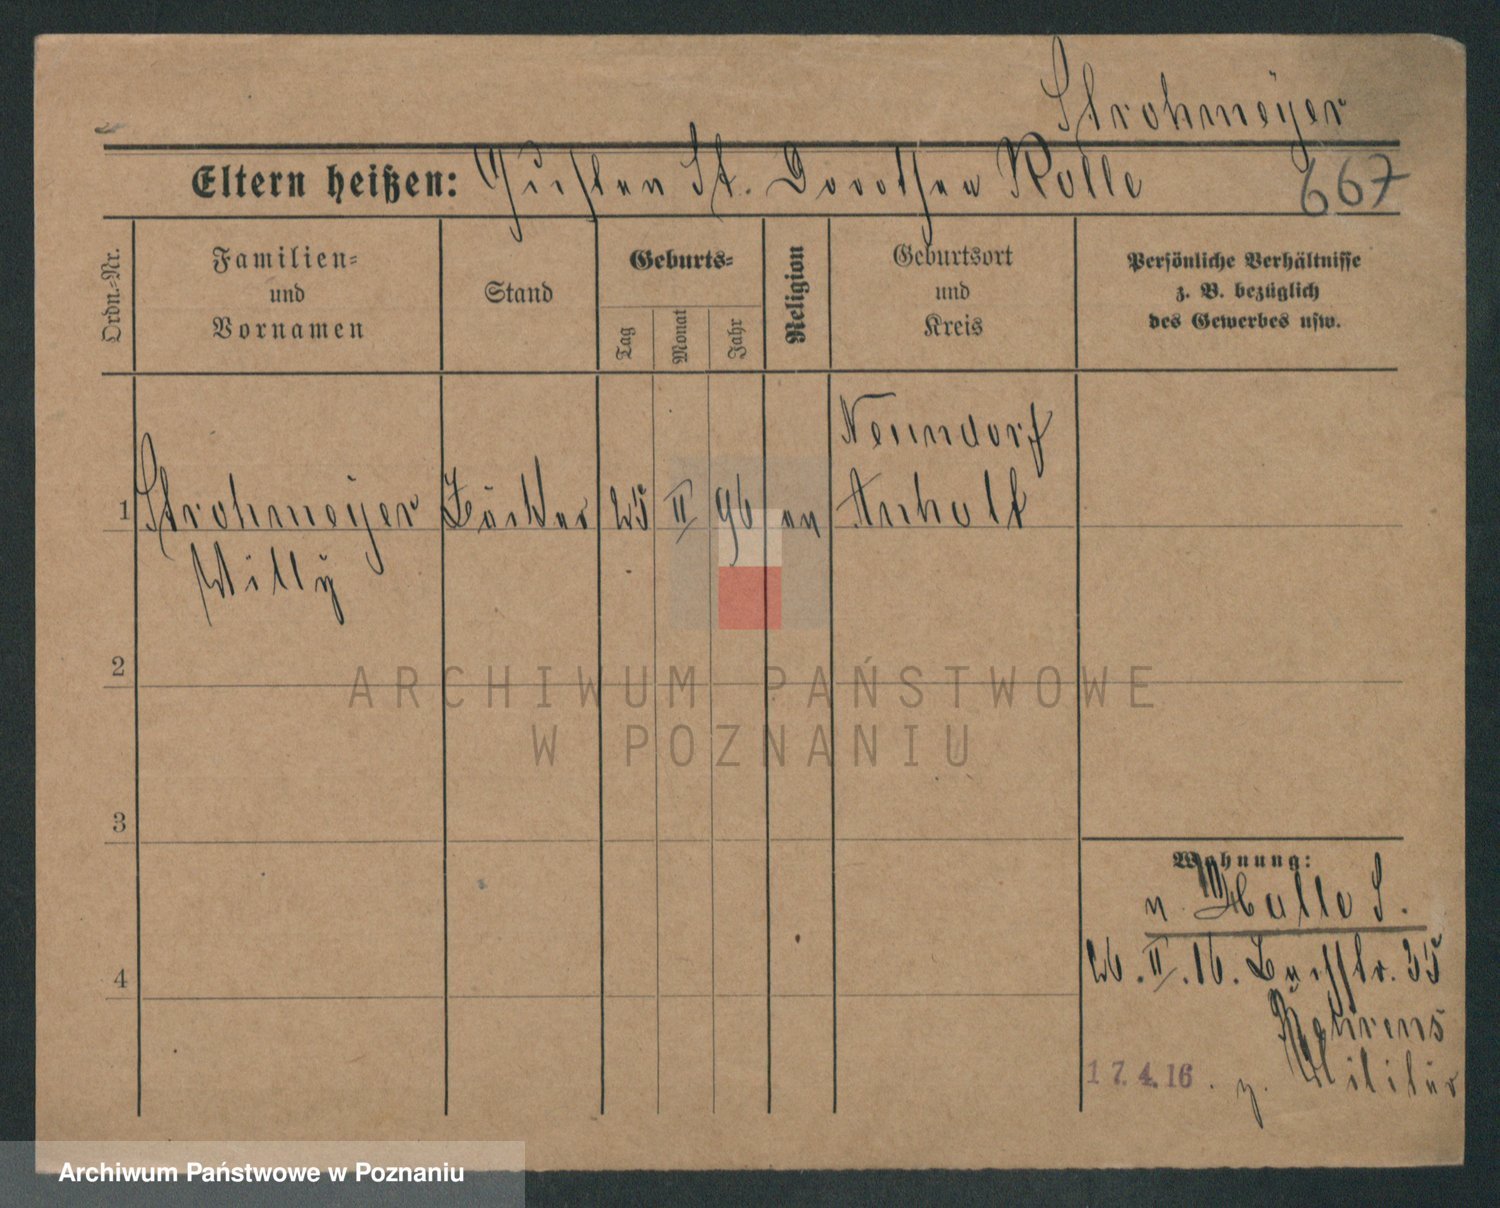 Strohmeyer
Eltern heißen: Gustav St. Dorothea Rolle
667
Ordn.-Nr.
Familien-
und
Vornamen
Stand
Geburts-
Tag
Monat
Jahr
Religion
Geburtsort
und
Kreis
Persönliche Verhältnisse
z. B. bezüglich
des Gewerbes usw.
Neundorf
1 Strohmeyer Bäcker 25 II 96 ev Anhalt
Willy
2
ARCHIWUM PAŃSTWOWE
W POZNANIU
3
Wohnung:
v. Halle S.
26. II. 16. 35
4
Behrens
17.4.16. z. Militär
Archiwum Państwowe w Poznaniu